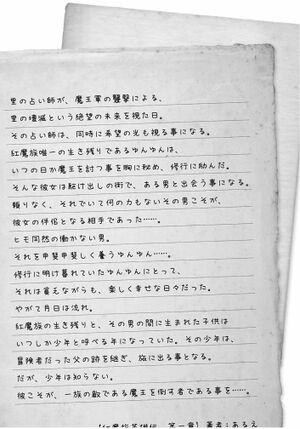 里の占い師が、魔王軍の襲撃による、
里の壊滅という絶望の未来を視た日。
その占い師は、同時に希望の光も視る事になる。
紅魔族唯一の生き残りであるゆんゆんは、
いつの日か魔王を討つ事を胸に秘め、修行に励んだ。
そんな彼女は駆け出しの街で、ある男と出会う事になる。
頼りなく、それでいて何の力もないその男こそが、
彼女の伴侶となる相手であった……。
ヒモ同然の働かない男。
それを甲斐甲斐しく養うゆんゆん……。
修行に明け暮れていたゆんゆんにとって、
それは貧しいながらも、楽しく幸せな日々だった。
やがて月日は流れ。
紅魔族の生き残りと、その男の間に生まれた子供は
いつしか少年と呼べる年になっていた。その少年は、
冒険者だった父の跡を継ぎ、旅に出る事となる。
だが、少年は知らない。
彼こそが、一族の敵である魔王を倒す者である事を……。
【紅魔族英雄伝 第一章】著者：あるえ